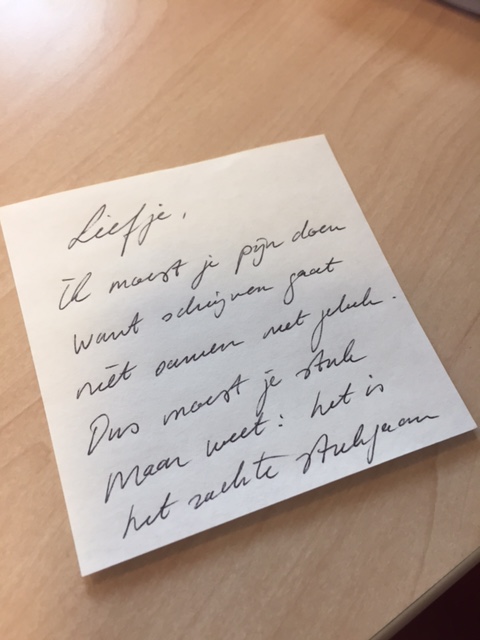 Liefje,
Ik moest je pijn doen
want schrijven gaat
niet samen met geluk.
Dus moest je stuk
Maar weet: het is
het zachte stukgaan